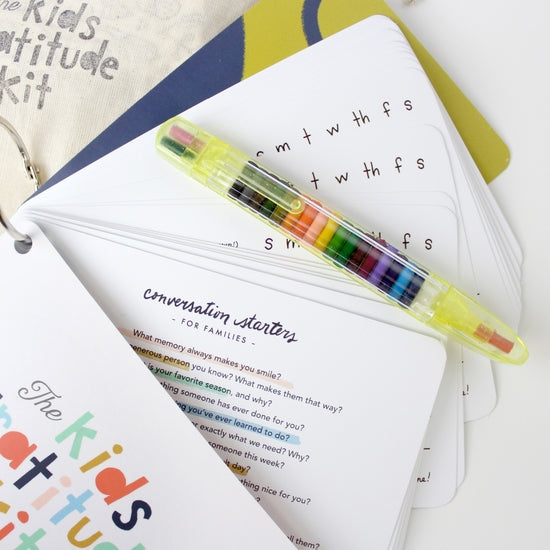 the
Kids
Gratitude
Kit
s m t w th f s
m t w th f s
s m f s
conversation starters
- FOR FAMILIES -
What memory always makes you smile?
generous person you know? What makes them that way?
is your favorite season, and why?
thing someone has ever done for you?
ng you've ever learned to do?
r exactly what we need? Why?
someone this week?
lt day?
thing nice for you?
ll them?
ne!
The
Kids
Gratitude
Kit